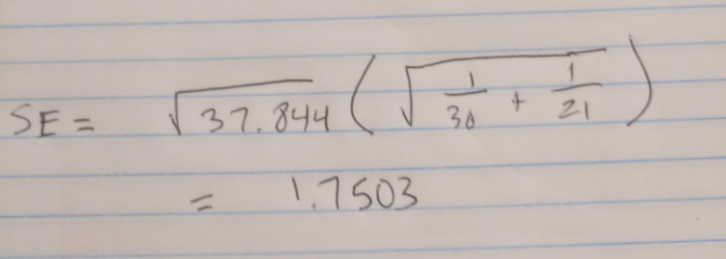 SE = √37.844 (√(1/30 + 1/21))
= 1.7503